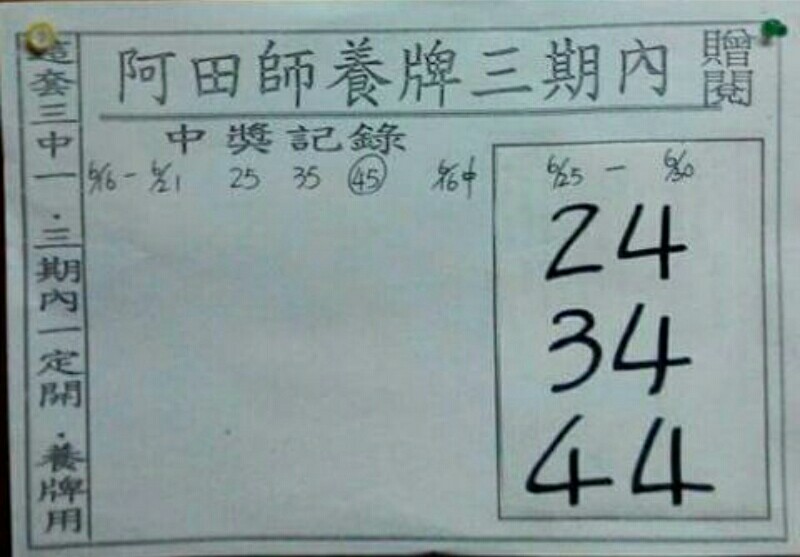 阿田師養牌三期內
贈閱
這套三中一．三期內一定開．養牌用
中獎記錄
6/16 - 6/21 25 35 45 6/16中
6/25 - 6/30
24
34
44